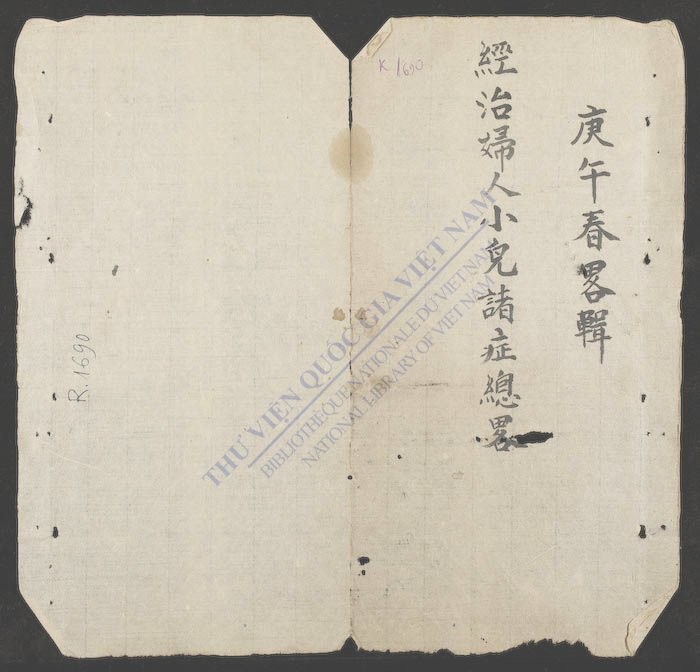 庚午春畧輯
經治婦人小兒諸症總畧
K 1690
R.1690
THƯ VIỆN QUỐC GIA VIỆT NAM
BIBLIOTHÈQUE NATIONALE DU VIETNAM
NATIONAL LIBRARY OF VIETNAM